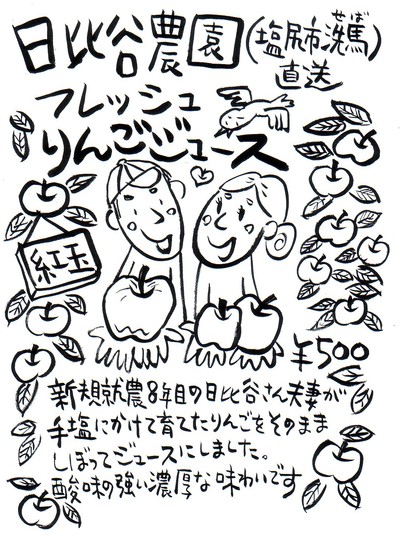 日比谷農園(塩尻市洗馬)
せば
直送
フレッシュ
りんごジュース
紅玉
¥500
新規就農8年目の日比谷さん夫妻が
手塩にかけて育てたりんごをそのまま
しぼってジュースにしました。
酸味の強い濃厚な味わいです